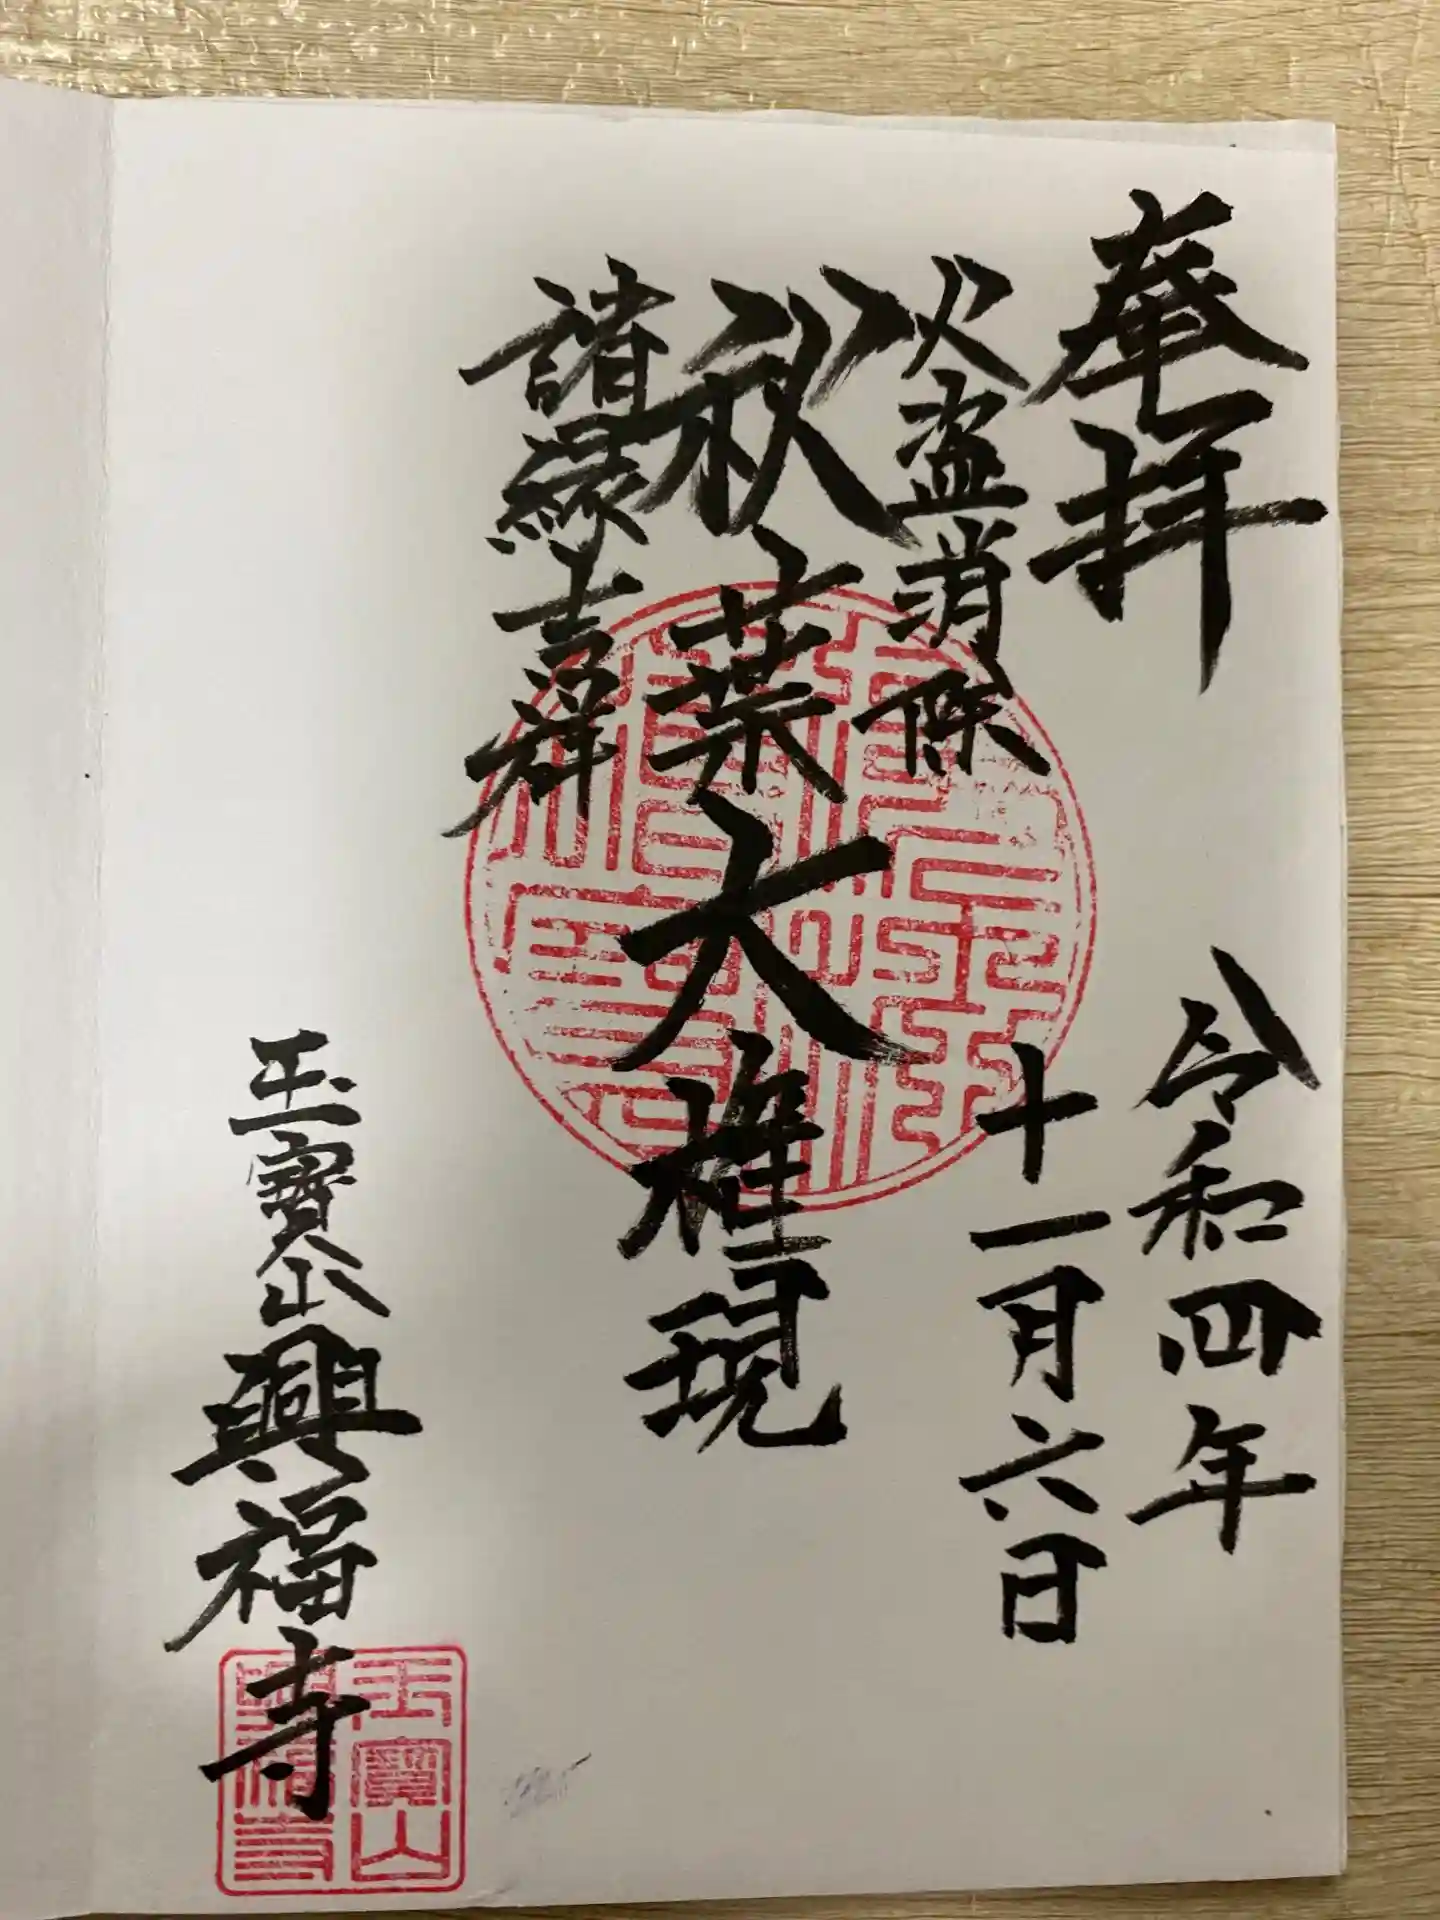 奉拝
令和四年
十一月六日
火盗消除
秋葉大権現
諸縁吉祥
玉寶山興福寺
玉寶山
興福寺